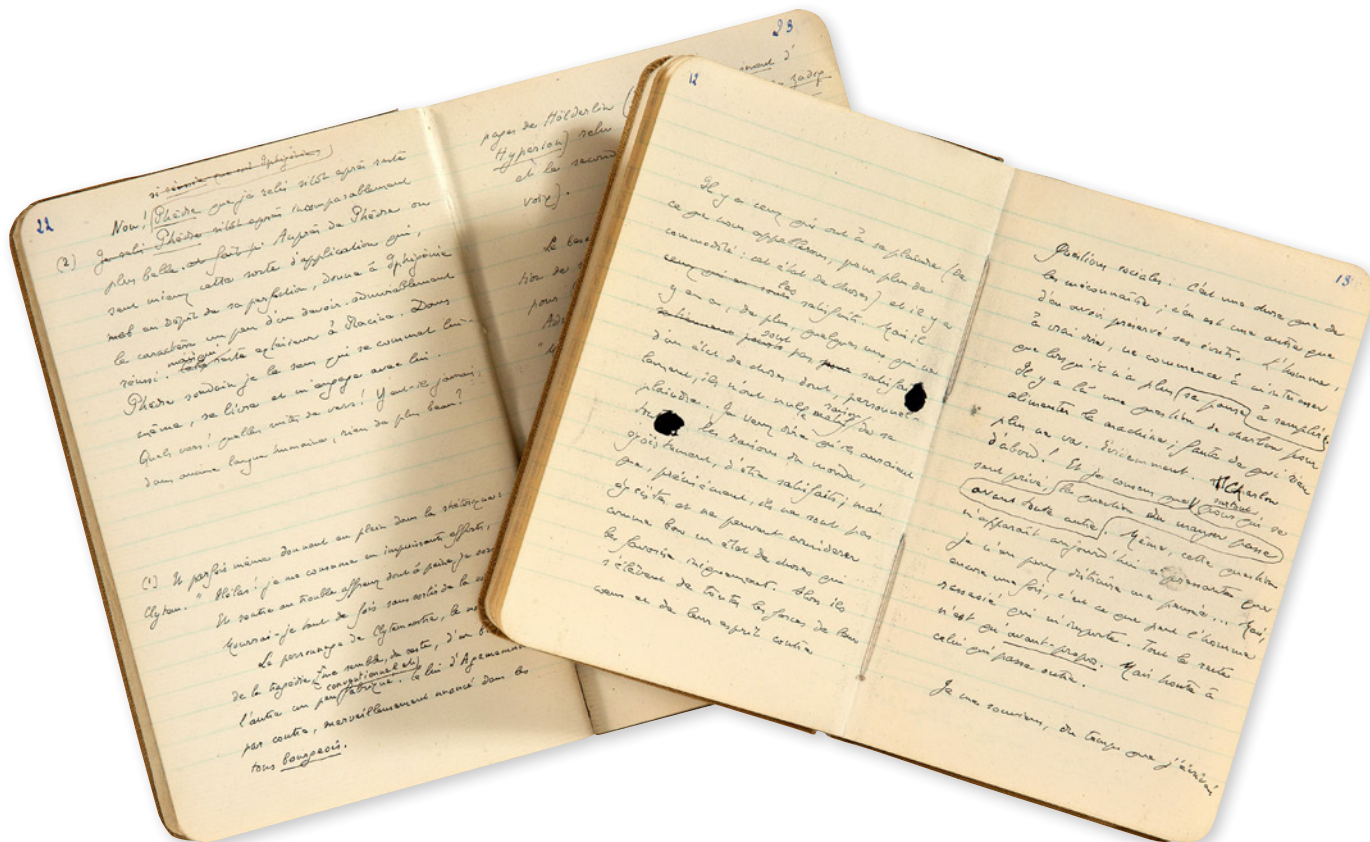 22
si réussie que soit Iphigénie)
Non! (Phèdre que je relis sitôt après reste
(2) Je relis Phèdre sitôt après incomparablement
plus belle. Auprès de Phèdre on
sent mieux cette sorte d'application qui,
met en dépit de sa perfection, donne à Iphigénie
le caractère un peu d'un devoir admirablement
réussi. reste extérieur à Racine. Dans
Phèdre soudain je le sens qui se commet lui-
même, se livre et m'engage avec lui.
Quels vers! quelles suites de vers! Y eut-il jamais,
dans aucune langue humaine, rien de plus beau?
(1) Et parfois même donnant en plein dans la rhétorique:
Clytem. "Hélas! je me consume en impuissants efforts,
Et rentre au trouble affreux dont à peine je
Mourrai-je tant de fois sans sortir de la
Le personnage de Clytemnestre, le
de la tragédie, me semble, du reste, d'un
conventionnel et
l'autre un peu fabriqué. Celui d'Agamemnon
par contre, merveilleusement énoncé dans les
tons bourgeois.
23
pages de Hölderlin (
Hyperion) relu
et la second
voix).
tion de
pour
12
Il y a ceux qui ont à se plaindre (de
ce que nous appellerons, pour plus de
commodité: cet état de choses) et il y a
ceux qui en sont les satisfaits. Mais il
y en a, de plus, quelques uns qui ne
sont pas satisfaits
d'un état de choses dont, personnel-
lement, ils n'ont nul motif de se
plaindre. Je veux dire qu'ils auraient
les raisons du monde,
égoïstement, d'être satisfaits; mais
que, précisément, ils ne sont pas
égoïstes et ne peuvent considérer
comme bon un état de choses qui
les favorise iniquement. Alors ils
s'élèvent de toutes les forces de leur
cœur et de leur esprit contre
13
Questions sociales: c'est une chose que de
les méconnaître; c'en est une autre que
d'en avoir préservé ses écrits. L'homme,
à vrai dire, ne commence à m'intéresser
que lorsqu'il n'a plus sa panse à remplir.
Il y a là une question de charbon pour
alimenter la machine; faute de quoi rien
plus ne va. Évidemment. Charbon
d'abord! Et je conçois que pour qui se
surtout
sent privé, la question du manger passe
avant toute autre. Même, cette question
m'apparaît aujourd'hui si pressante que
je n'en puis distraire ma pensée... Mais,
encore une fois, c'est ce que peut l'homme
rassasié, qui m'importe. Tout le reste
n'est qu'avant-propos. Mais honte à
celui qui passe outre.
Je me souviens, du temps que j'écrivais